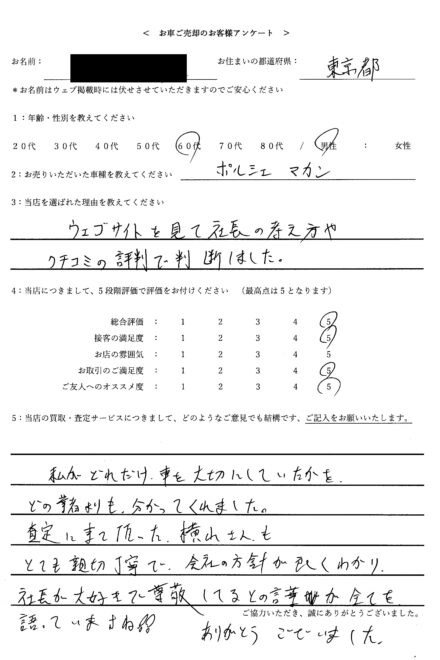 < お車ご売却のお客様アンケート >
お名前: お住まいの都道府県: 東京都
*お名前はウェブ掲載時には伏せさせていただきますのでご安心ください
1:年齢・性別を教えてください
20代 30代 40代 50代 60代 70代 80代 / 男性 : 女性
2:お売りいただいた車種を教えてください ポルシェ マカン
3:当店を選ばれた理由を教えてください
ウェブサイトを見て社長の考え方や
クチコミの評判で判断しました。
4:当店につきまして、5段階評価で評価をお付けください (最高点は5となります)
総合評価 : 1 2 3 4 5
接客の満足度 : 1 2 3 4 5
お店の雰囲気 : 1 2 3 4 5
お取引のご満足度 : 1 2 3 4 5
ご友人へのオススメ度 : 1 2 3 4 5
5:当店の買取・査定サービスにつきまして、どのようなご意見でも結構です、ご記入をお願いいたします。
私がどれだけ車を大切にしていたかを
どの業者よりも、分かってくれました。
査定に来て頂いた、横山さんも
とても親切丁寧で、会社の方針が良くわかり、
社長が大好きで尊敬してるとの言葉が全てを
ご協力いただき、誠にありがとうございました。
語っていますね!!
ありがとうございました。